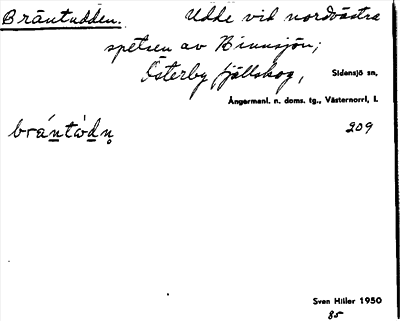 Bräntudden. Udde vid nordvästra
spetsen av Binnsjön;
Österby fjällskog, Sidensjö sn,
Ångermanl. n. doms. tg., Västernorrl, l.
brántàdn̥ 209
Sven Hiller 1950
85